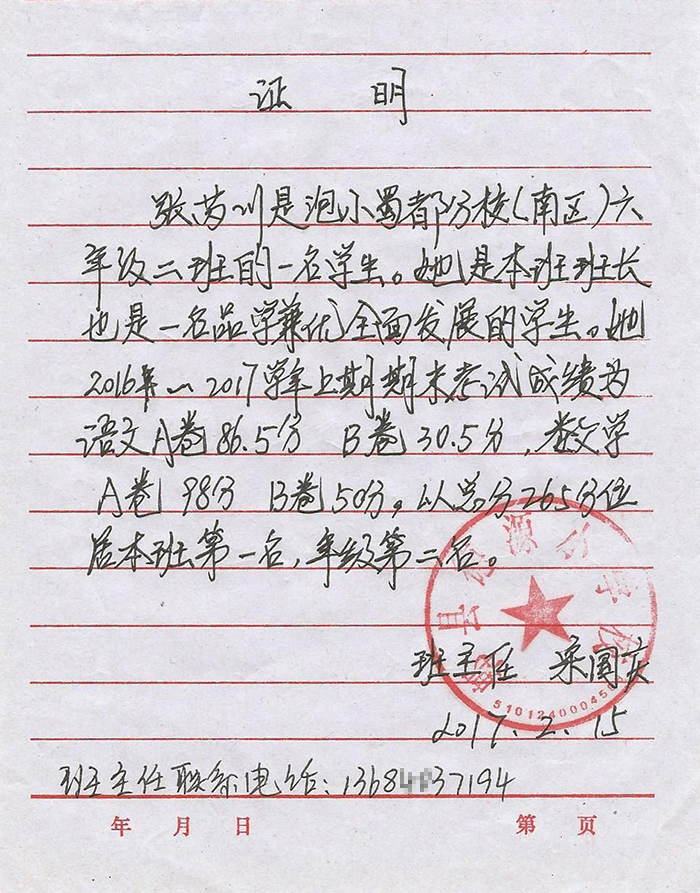 证 明
张芮川是泡小蜀都分校(南区)六
年级二班的一名学生。她是本班班长
也是一名品学兼优全面发展的学生。她
2016年~2017学年上期期末考试成绩为
语文A卷86.5分 B卷30.5分,数学
A卷 98分 B卷50分。以总分265分位
居本班第一名,年级第二名。
班主任 国庆
2017.2.15
班主任联系电话:1368 37194
510124000
年 月 日 第 页